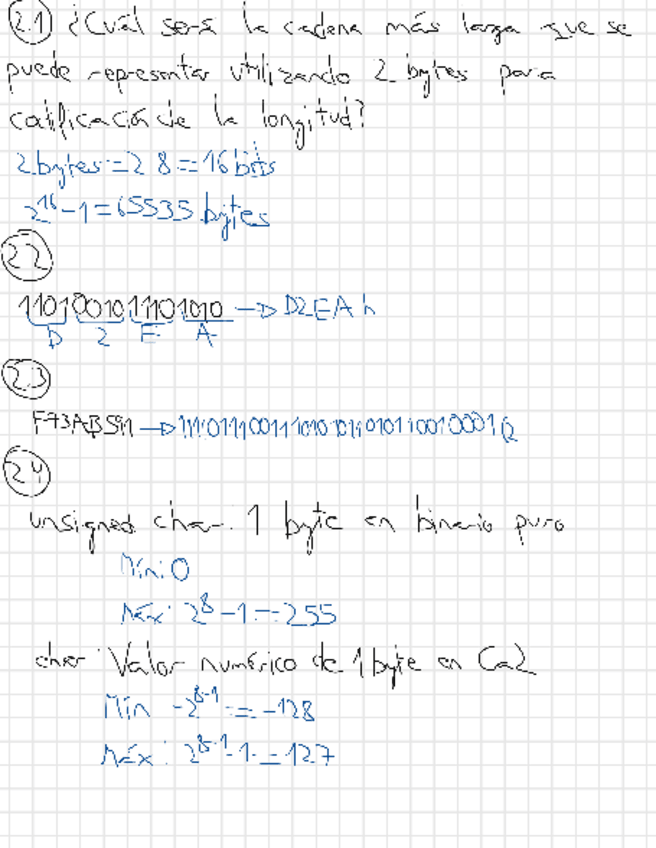 2.1 ¿Cuál será la cadena más larga que se
puede representar utilizando 2 bytes para
codificación de la longitud?
2 bytes = 2 8 = 16 bits
2^16 - 1 = 65535 bytes
2.2
1101001011101010 → D2EA h
D 2 E A
2.3
2.4
unsigned char: 1 byte en binario puro
Mín: 0
Máx: 2^8 - 1 = 255
char: Valor numérico de 1 byte en Ca2
Mín -2^8-1 = -128
Máx: 2^8-1 - 1 = 127